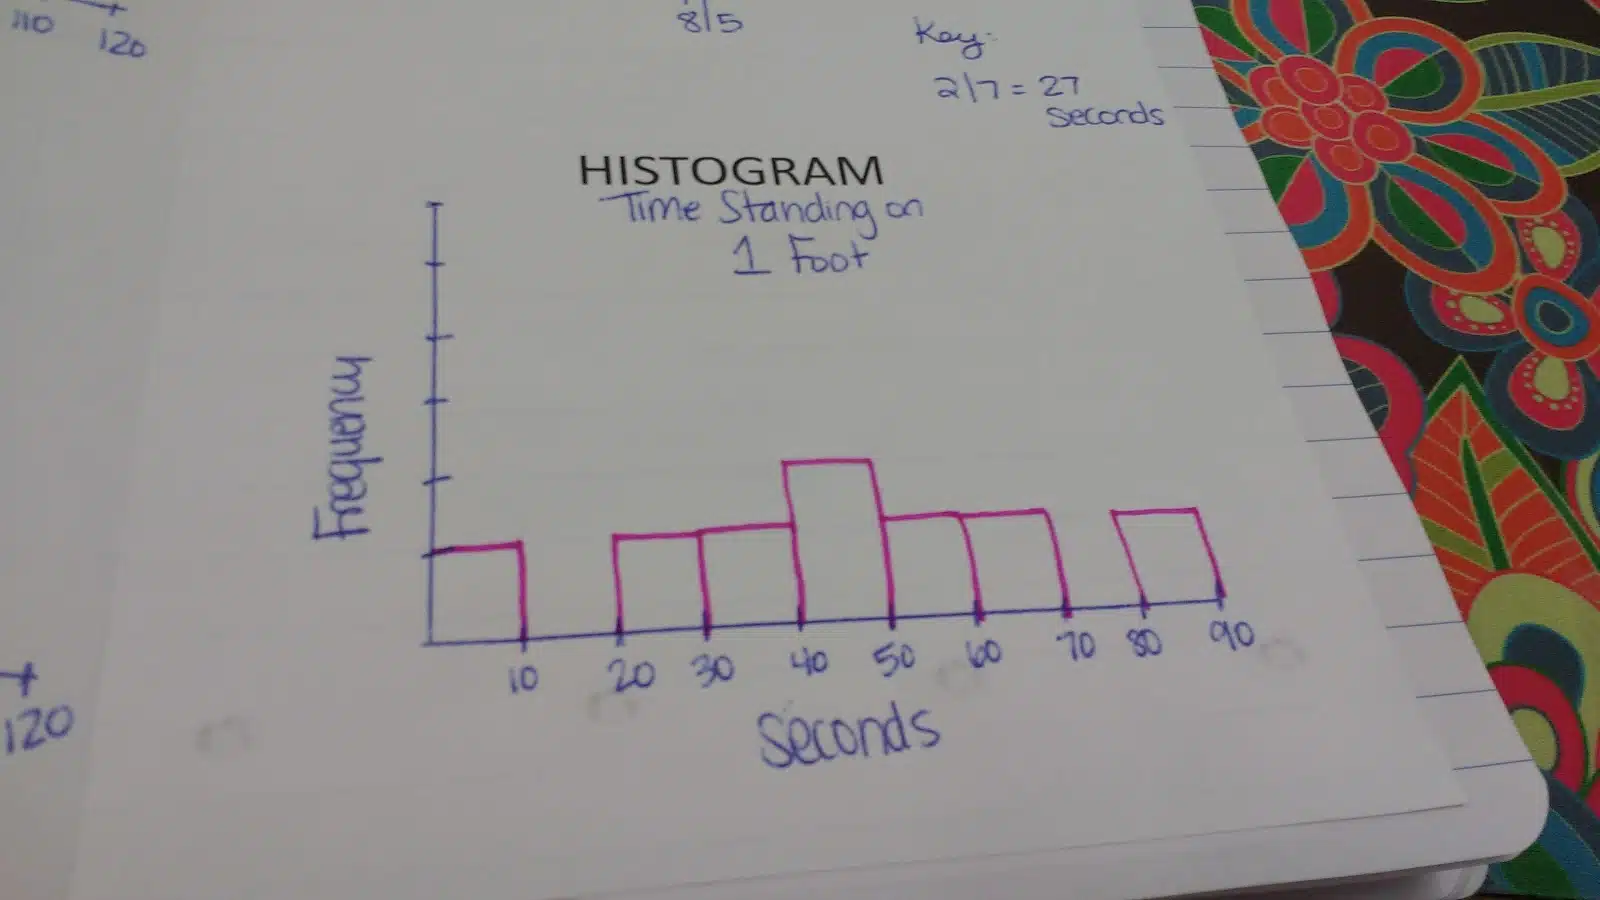 110
120
8|5
Key:
2|7 = 27
seconds
HISTOGRAM
Time Standing on
1 Foot
Frequency
10 20 30 40 50 60 70 80 90
Seconds
120